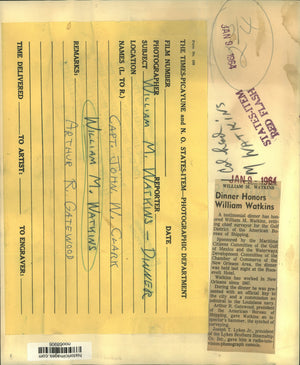 Form No. 109
THE TIMES-PICAYUNE and N. O. STATES-ITEM—PHOTOGRAPHIC DEPARTMENT
FILM NUMBER
DATE
PHOTOGRAPHER
REPORTER
SUBJECT WILLIAM M. WATKINS - DINNER
LOCATION
NAMES (L. TO R.) CAPT. JOHN N. CLARK
WILLIAM M. WATKINS
REMARKS: ARTHUR R GATEWOOD
TIME DELIVERED TO ARTIST: TO ENGRAVER:
JAN 9 1964
STATES-ITEM
RED FLASH
M WATKINS
JAN 9 1964
WILLIAM M. WATKINS
Dinner Honors
William Watkins
A testimonial dinner has honored
William M. Watkins, retiring
chief surveyor for the Gulf
District of the American Bureau
of Shipping.
Sponsored by the Maritime
Citizens Committee of the Gulf
of Mexico and the Waterways
Development Committee of the
Chamber of Commerce of the
New Orleans Area, the dinner
was held last night at the Roosevelt
Hotel.
Watkins has worked in New
Orleans since
During the dinner he was presented
an official key to
the city and a commission as
honorary
Arthur R. Gatewood, president
of the American Bureau of
Shipping, gave Watkins an inspector's
hammer, the symbol of
surveying.
Joseph T. Lykes Jr., president
of the Lykes Brothers Steamship
Co. Inc., gave him a radio-television
phonograph